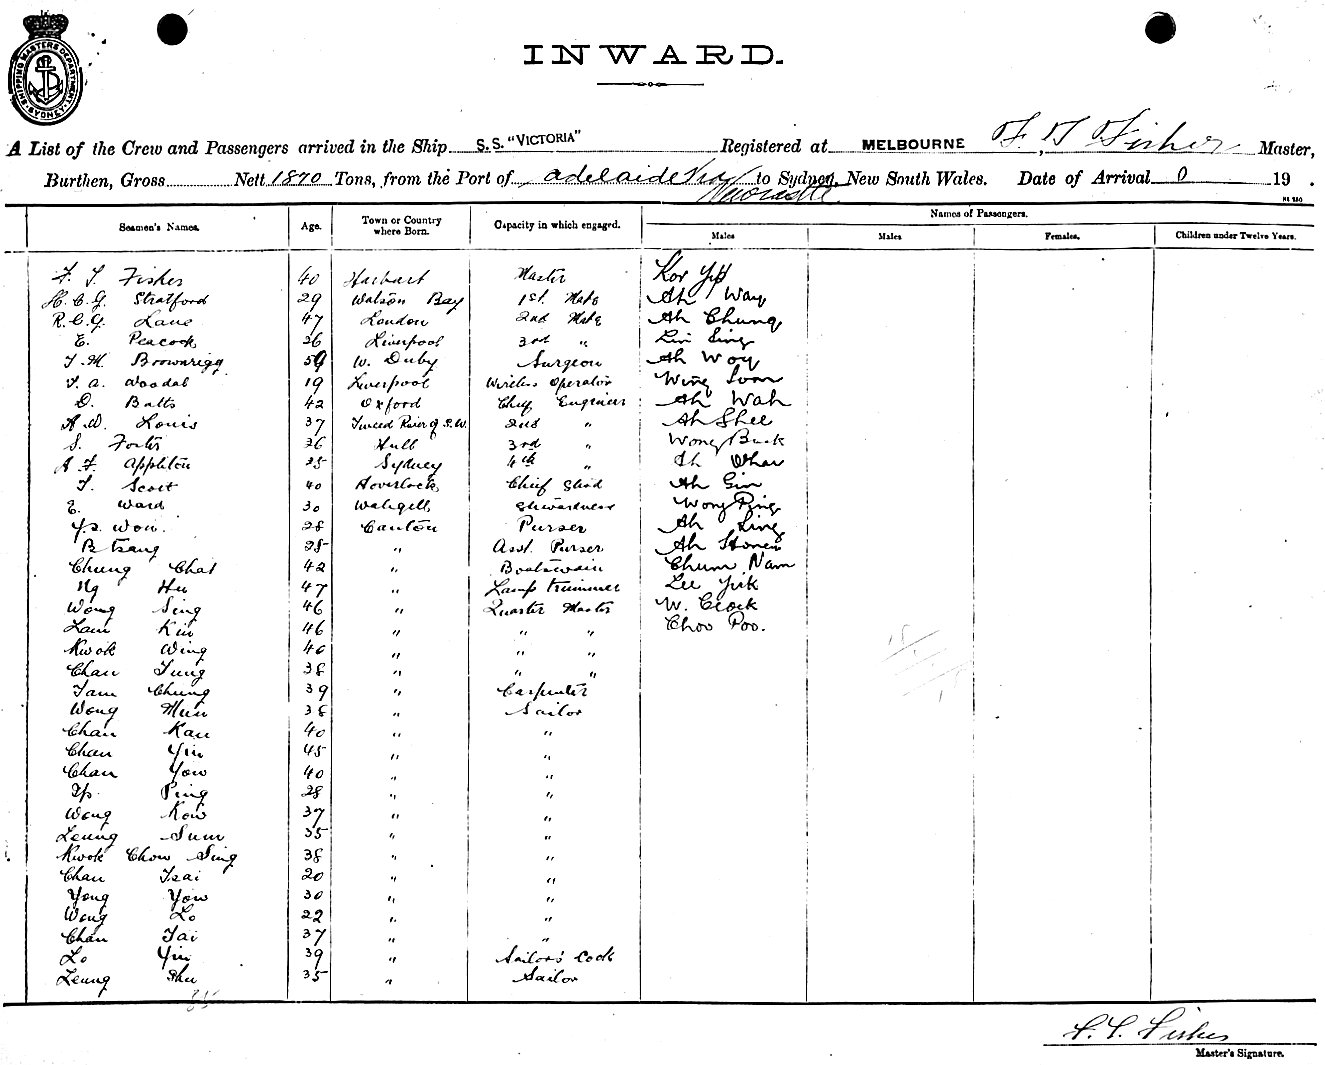 SHIPPING MASTERS DEPARTMENT SYDNEY
INWARD.
A List of the Crew and Passengers arrived in the Ship S.S. "VICTORIA" Registered at MELBOURNE F. T. Fisher Master,
Burthen, Gross Nett 1870 Tons, from the Port of Adelaide via Newcastle to Sydney, New South Wales. Date of Arrival 0 19 .
Seamen's Names. Age. Town or Country where Born. Capacity in which engaged. Names of Passengers.
Males Males Females. Children under Twelve Years.
F. T. Fisher 40 Master Kor Yip
H. C. G. Stratford 29 Watson Bay 1st. Mate Ah Way
R. C. G. Lane 47 London 2nd Mate Ah Chung
E. Peacock 26 Liverpool 3rd " Lin Sing
T. M. Brownrigg 59 W. Surgeon Ah Woy
T. A. Woodal 19 Liverpool Wireless Operator Wing Soon
D. Batts 42 Oxford Chief Engineer Ah Wah
A. W. Louis 37 Tweed River 2nd " Ah Shee
S. Foster 26 Hull 3rd " Wong Buck
A. F. Appleton 25 Sydney 4th " Ah
T. Scott 40 Chief Ah Gin
E. Ward 30 Stewardess Wong Ping
Yp. Wow. 28 Canton Purser Ah Ling
B Tsang 28 " Asst. Purser Ah
Chung Chat 42 " Boatswain Chum Nam
Ng Hu 47 " Lamp trimmer Lee Yick
Wong Sing 46 " Quarter Master W. Crock
Lam Kin 46 " " " Choo Poo.
Kwok Wing 46 " " "
Chan Tung 38 " " "
Tam Chung 39 " Carpenter
Wong Mun 38 " Sailor
Chan Kau 40 " "
Chan Yin 45 " "
Chan Yow 40 " "
Yp. Ping 28 " "
Wong Kow 37 " "
Leung Sum 35 " "
Kwok Chow Sing 38 " "
Chan Tsai 20 " "
Yong Yow 30 " "
Wong Lo 22 " "
Chan Tai 37 " "
Lo Yin 39 " Sailor's Cook
Leung Shu 35 " Sailor
35
F. T. Fisher
Master's Signature.